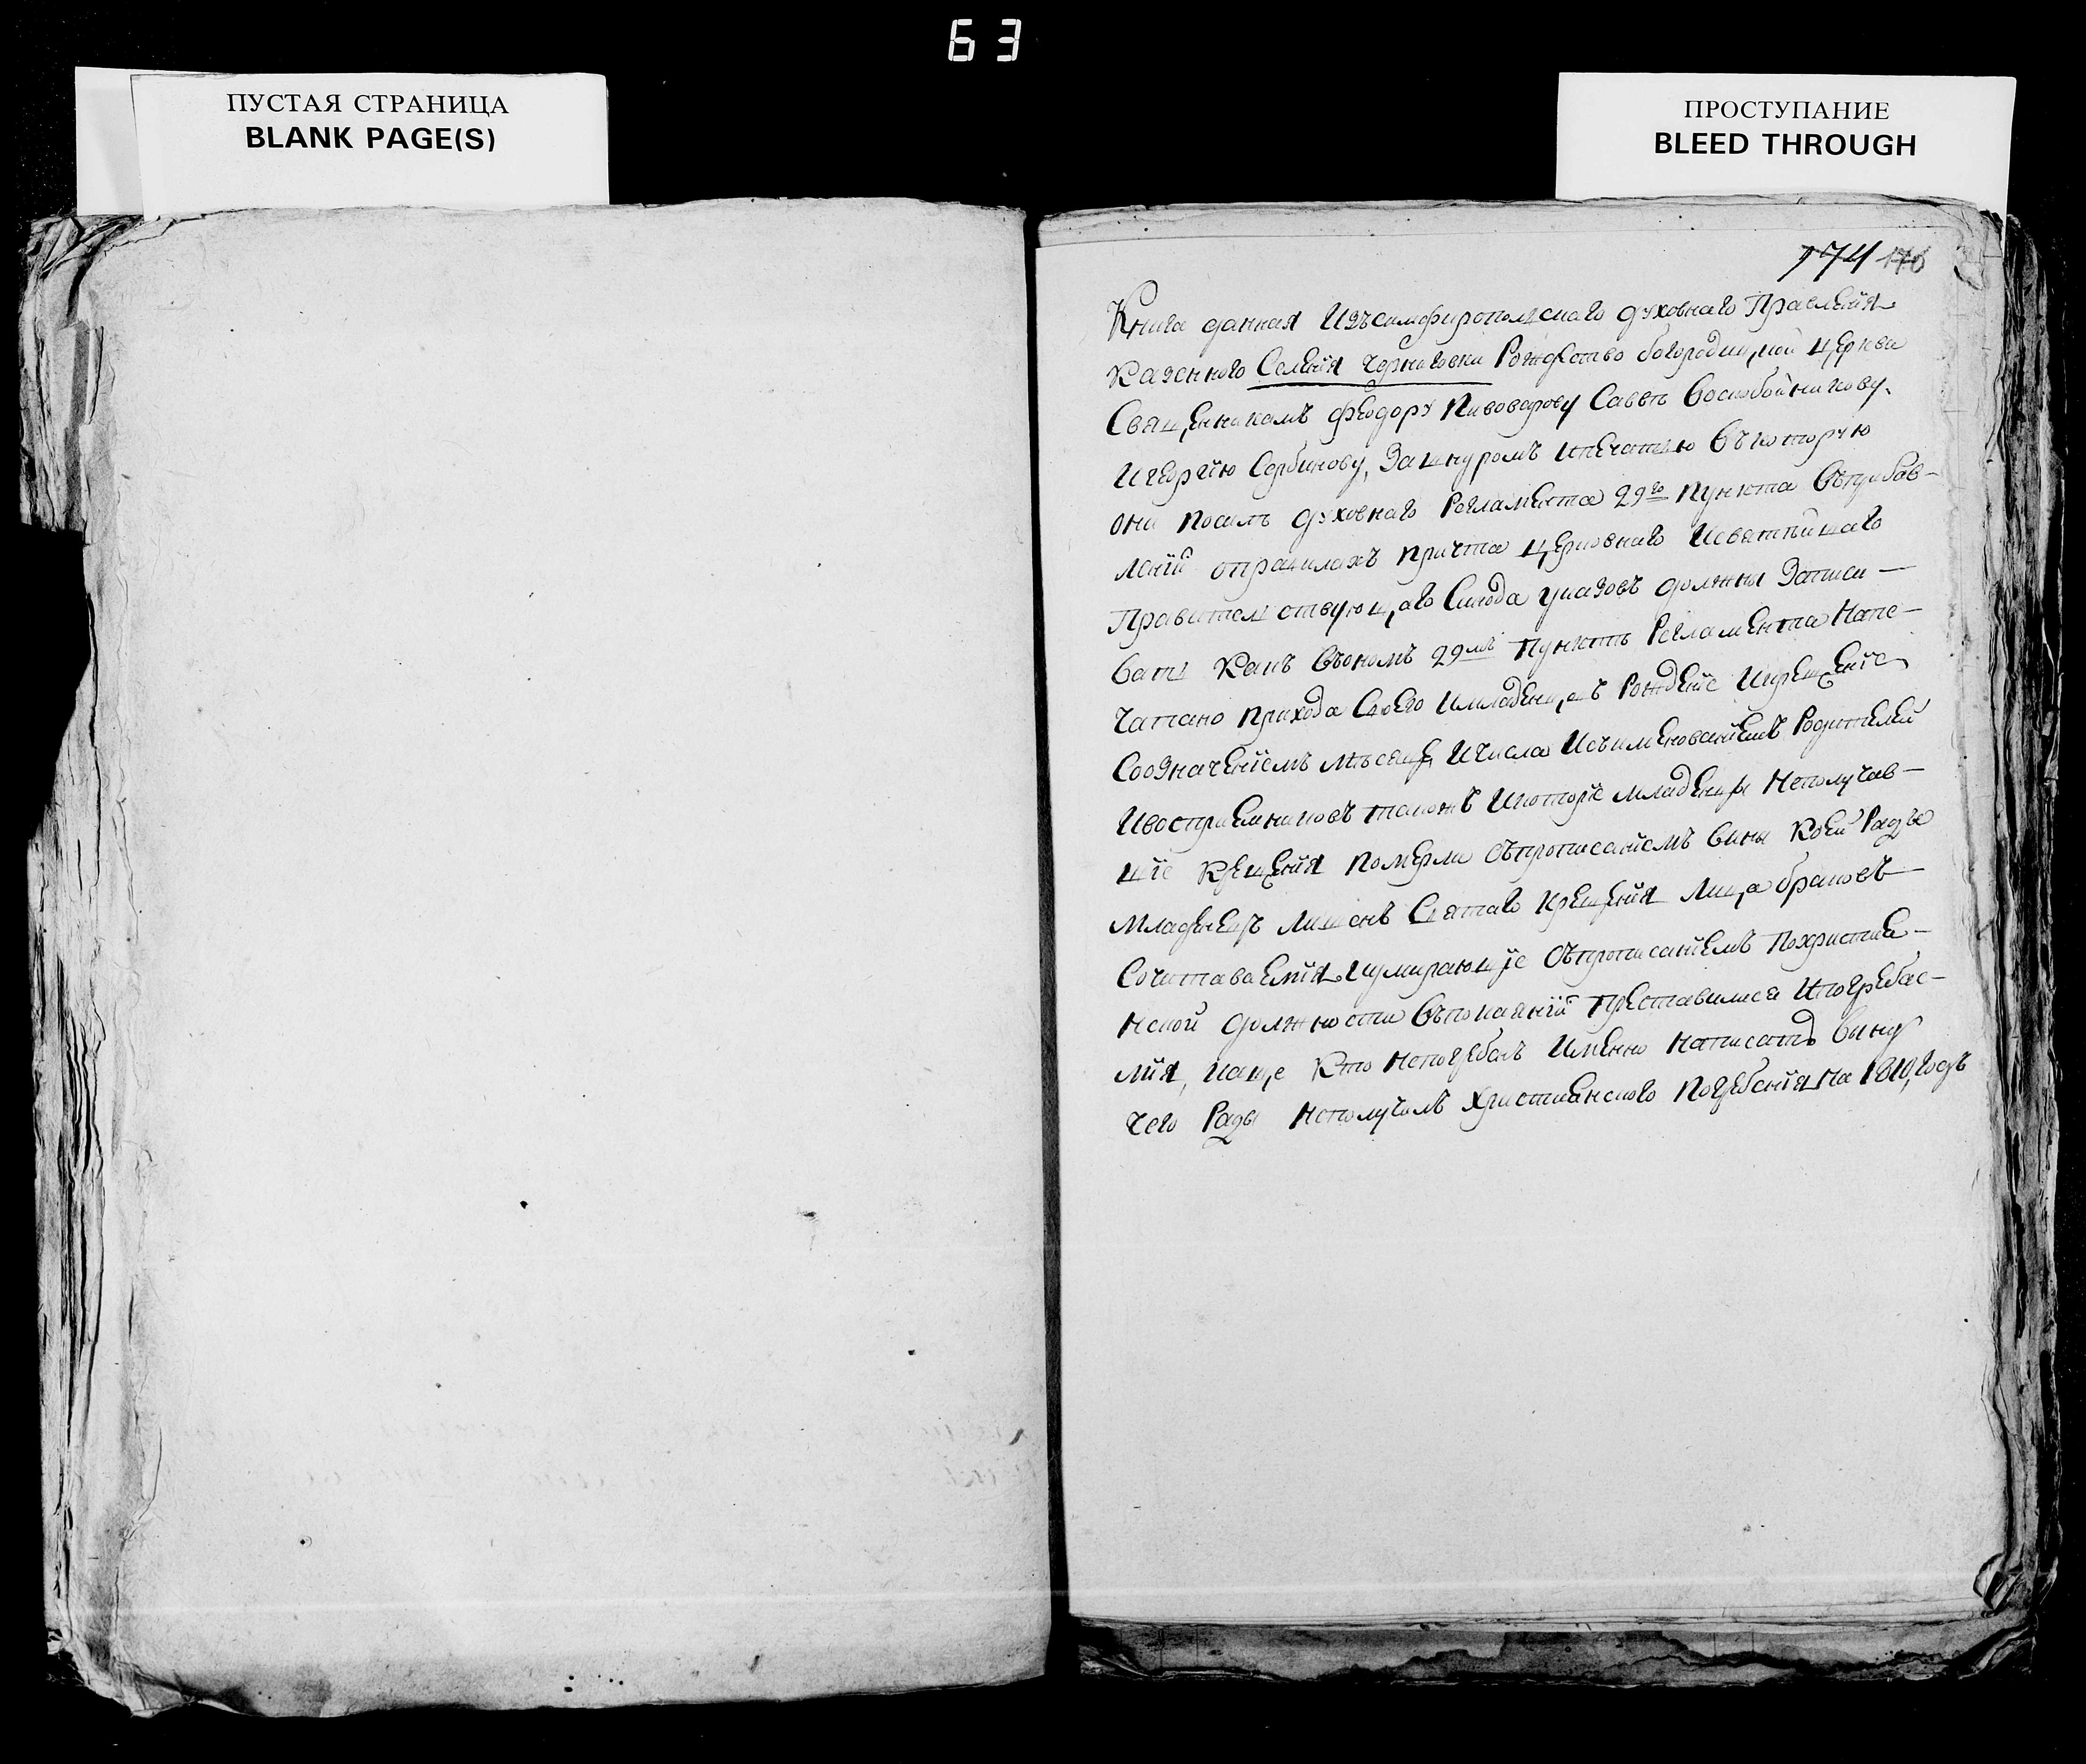 63
ПУСТАЯ СТРАНИЦА
BLANK PAGE(S)
ПРОСТУПАНИЕ
BLEED THROUGH
174 176
Книга данная Изъсимферополскаго духовнаго Правленія
Казенного Селенія Черниговки Рождество богородицкой церкви
Священникамъ Феодору Пивоварову Саввѣ Воскобойникову
Игеоргію Сербинову, Зашнуромъ Ипечатью Въкоторую
они посилѣ духовнаго Регламента 29го пункта Въприбав-
леніи оправилахъ причта церковнаго Исвятѣйшаго
Правителствующаго Синода указовъ должны Записи-
вать Какъ Въономъ 29мъ пунктѣ Регламента Напе-
чатано прихода Своего Имладенцевъ Рожденіе Икрещеніе
Сообзначеніемъ мѣсяца Ичисла Исъименованіемъ Родителей
Ивоспріемниковъ також Икоторіе младенцы Неполучив-
шіе Крещенія померли Съпрописаніемъ Вины Коей Ради
Младенецъ Лишенъ Святаго Крещенія Лица браковъ
Сочитаваемія Иумирающіе Съпрописаніемъ Похристиа-
нской должности Въпокаяніи преставилися Ипогребае-
мія, Иаще Кто Непогребенъ Именно Написать Вину
Чего Ради Неполучилъ Християнского Погребенія На 1810 годъ